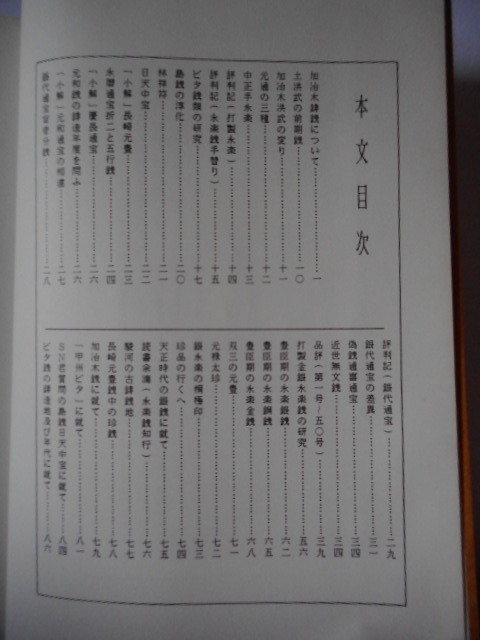 本文目次
加治木鋳銭について…一
土洪武の前期銭…一〇
加治木洪武の変り…一一
元通の三種…一二
中正手永楽…一三
評判記(打製永楽)…一四
評判記(永楽銭手替り)…一五
ビタ銭類の研究…一七
島銭の淳化…二〇
林祥符…二一
日天中宝…二二
「小解」長崎元豊…二三
永暦通宝折二と五行銭…二四
「小解」慶長通宝…二六
元和銭の鋳造年度を問ふ…二六
「小解」元和通宝の相違…二七
銀代通宝賢者分銭…二八
評判記(銀代通宝)…二九
銀代通宝の差異…三一
偽銭通審通宝…三四
近世無文銭…三四
品評(第一号/五〇号)…三九
打製金銀永楽銭の研究…五六
豊臣期の永楽銀銭…六二
豊臣期の永楽銅銭…六五
豊臣期の永楽金銭…六八
双三の元豊…七一
元権太珍…七二
銀永楽の桐極印…七三
珍品の行くへ…七四
天正時代の銀銭に就て…七五
読書余滴(永楽銭知行)…七六
駿河の古鋳銭地…七七
長崎元豊銭中の珍銭…七八
加治木銭に就て…七九
「甲州ビタ」に就て…八一
SN君質問の島銭日天中宝に就て…八四
ビタ銭の鋳造地及び年代に就て…八六